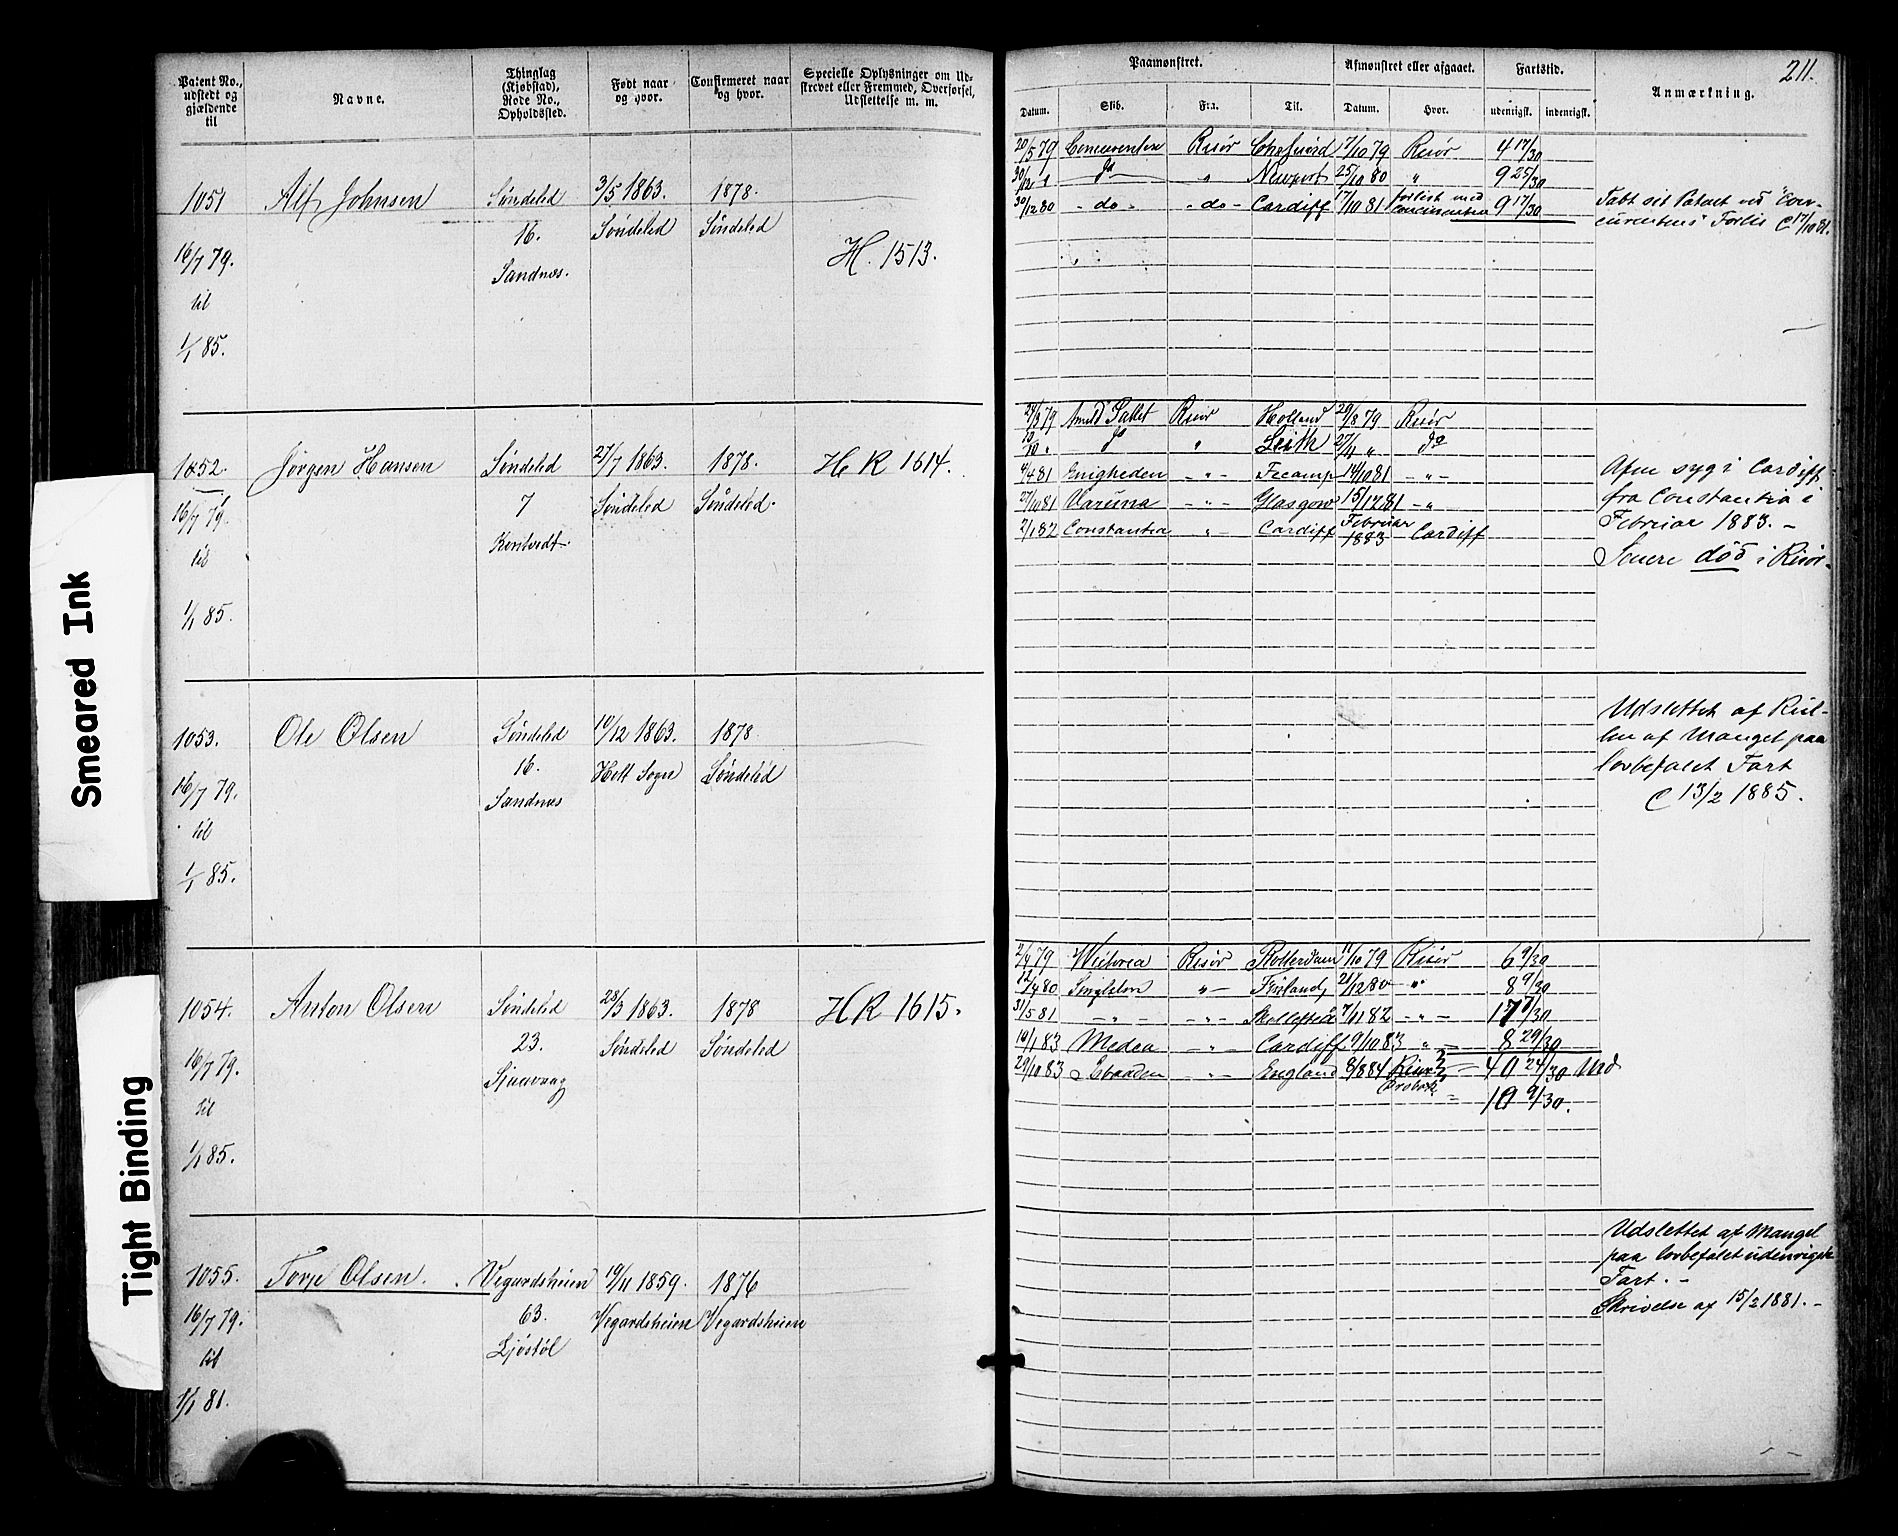 Patent No., udstedt og gjældende til
Navne.
Thinglag (Kjøbstad), Rode No., Opholdssted.
Født naar og hvor.
Confirmeret naar og hvor.
Specielle Oplysninger om Udskrevet eller Fremmed, Overførsel, Udslettelse m. m.
1051 Alf Johnsen Søndeled 3/5 1863. 1878.
16. Søndeled Søndeled
16/7 79. Sandnæs. H. 1513.
til
1/1 85.
1052. Jørgen Hansen Søndeled 27/7 1863. 1878. H R 1614.
16/7 79. 7 Søndeled Søndeled.
til
1/1 85.
1053. Ole Olsen Søndeled 14/12 1863. 1878
16. Holt Sogn Søndeled
16/7 79. Sandnæs
til
1/1 85.
1054. Anton Olsen Søndeled 28/3 1863. 1878 H R 1615.
16/7 79. 23. Søndeled Søndeled
til
1/1 85.
1055. Torje Olsen. Vegardsheien 19/11 1859. 1876
16/7 79. 63. Vegardsheien Vegardsheien
til Ljøstøl
1/1 81.
Smeared Ink
Tight Binding
211.
Paamønstret. Afmønstret eller afgaaet. Fartstid. Anmærkning.
Datum. Skib. Fra. Til. Datum. Hvor. udenrigst. indenrigst.
20/5 79 Risør 17/10 79 Risør 4 17/30
30/12 " do " Newport 25/10 80 " 9 25/30
30/12 80 - do - - do - Cardiff 17/10 81 forlist med 9 17/30
Tabt sit Patent ved "Con-
currentens" Forlis C 17/10 81.
79 Risør Holland 29/8 79 Risør
do " Leith 27/11 " do
4/4 81 Enigheden - " - Fecamp 14/10 81 - " -
27/10 81 Varuna - " - Glasgow 15/12 81 - "
2/1 82 Constantia " Cardiff Februar 1883 Cardiff
Afm syg i Cardiff
fra Constantia i
Februar 1883. -
Senere død i Risør.
Udslettet af Rul-
len af Mangel paa
lovbefalet Fart
C 13/2 1885.
2/4 79 Victoria Risør Rotterdam 11/10 79 Risør 6 9/30
12/4 80 " - 21/12 80 - " - 8 9/30
31/5 81 - " - - " - Skellefteå 7/11 82 - " - 17 7/30
10/1 83 Medea - " - Cardiff 9/10 83 " - 8 29/30
29/10 83 - " - England 8/8 84 Risør 40 24/30 Ud
10 9/30.
Udslettet af Mangel
paa lovbefalet udenrigsk
Fart. -
Skrivelse af 15/2 1881. -